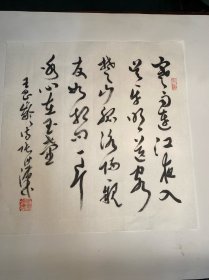 寒雨連江夜入
吴平明送客
楚山孤洛陽親
友如相问一片
冰心在玉壶
王昌龄诗